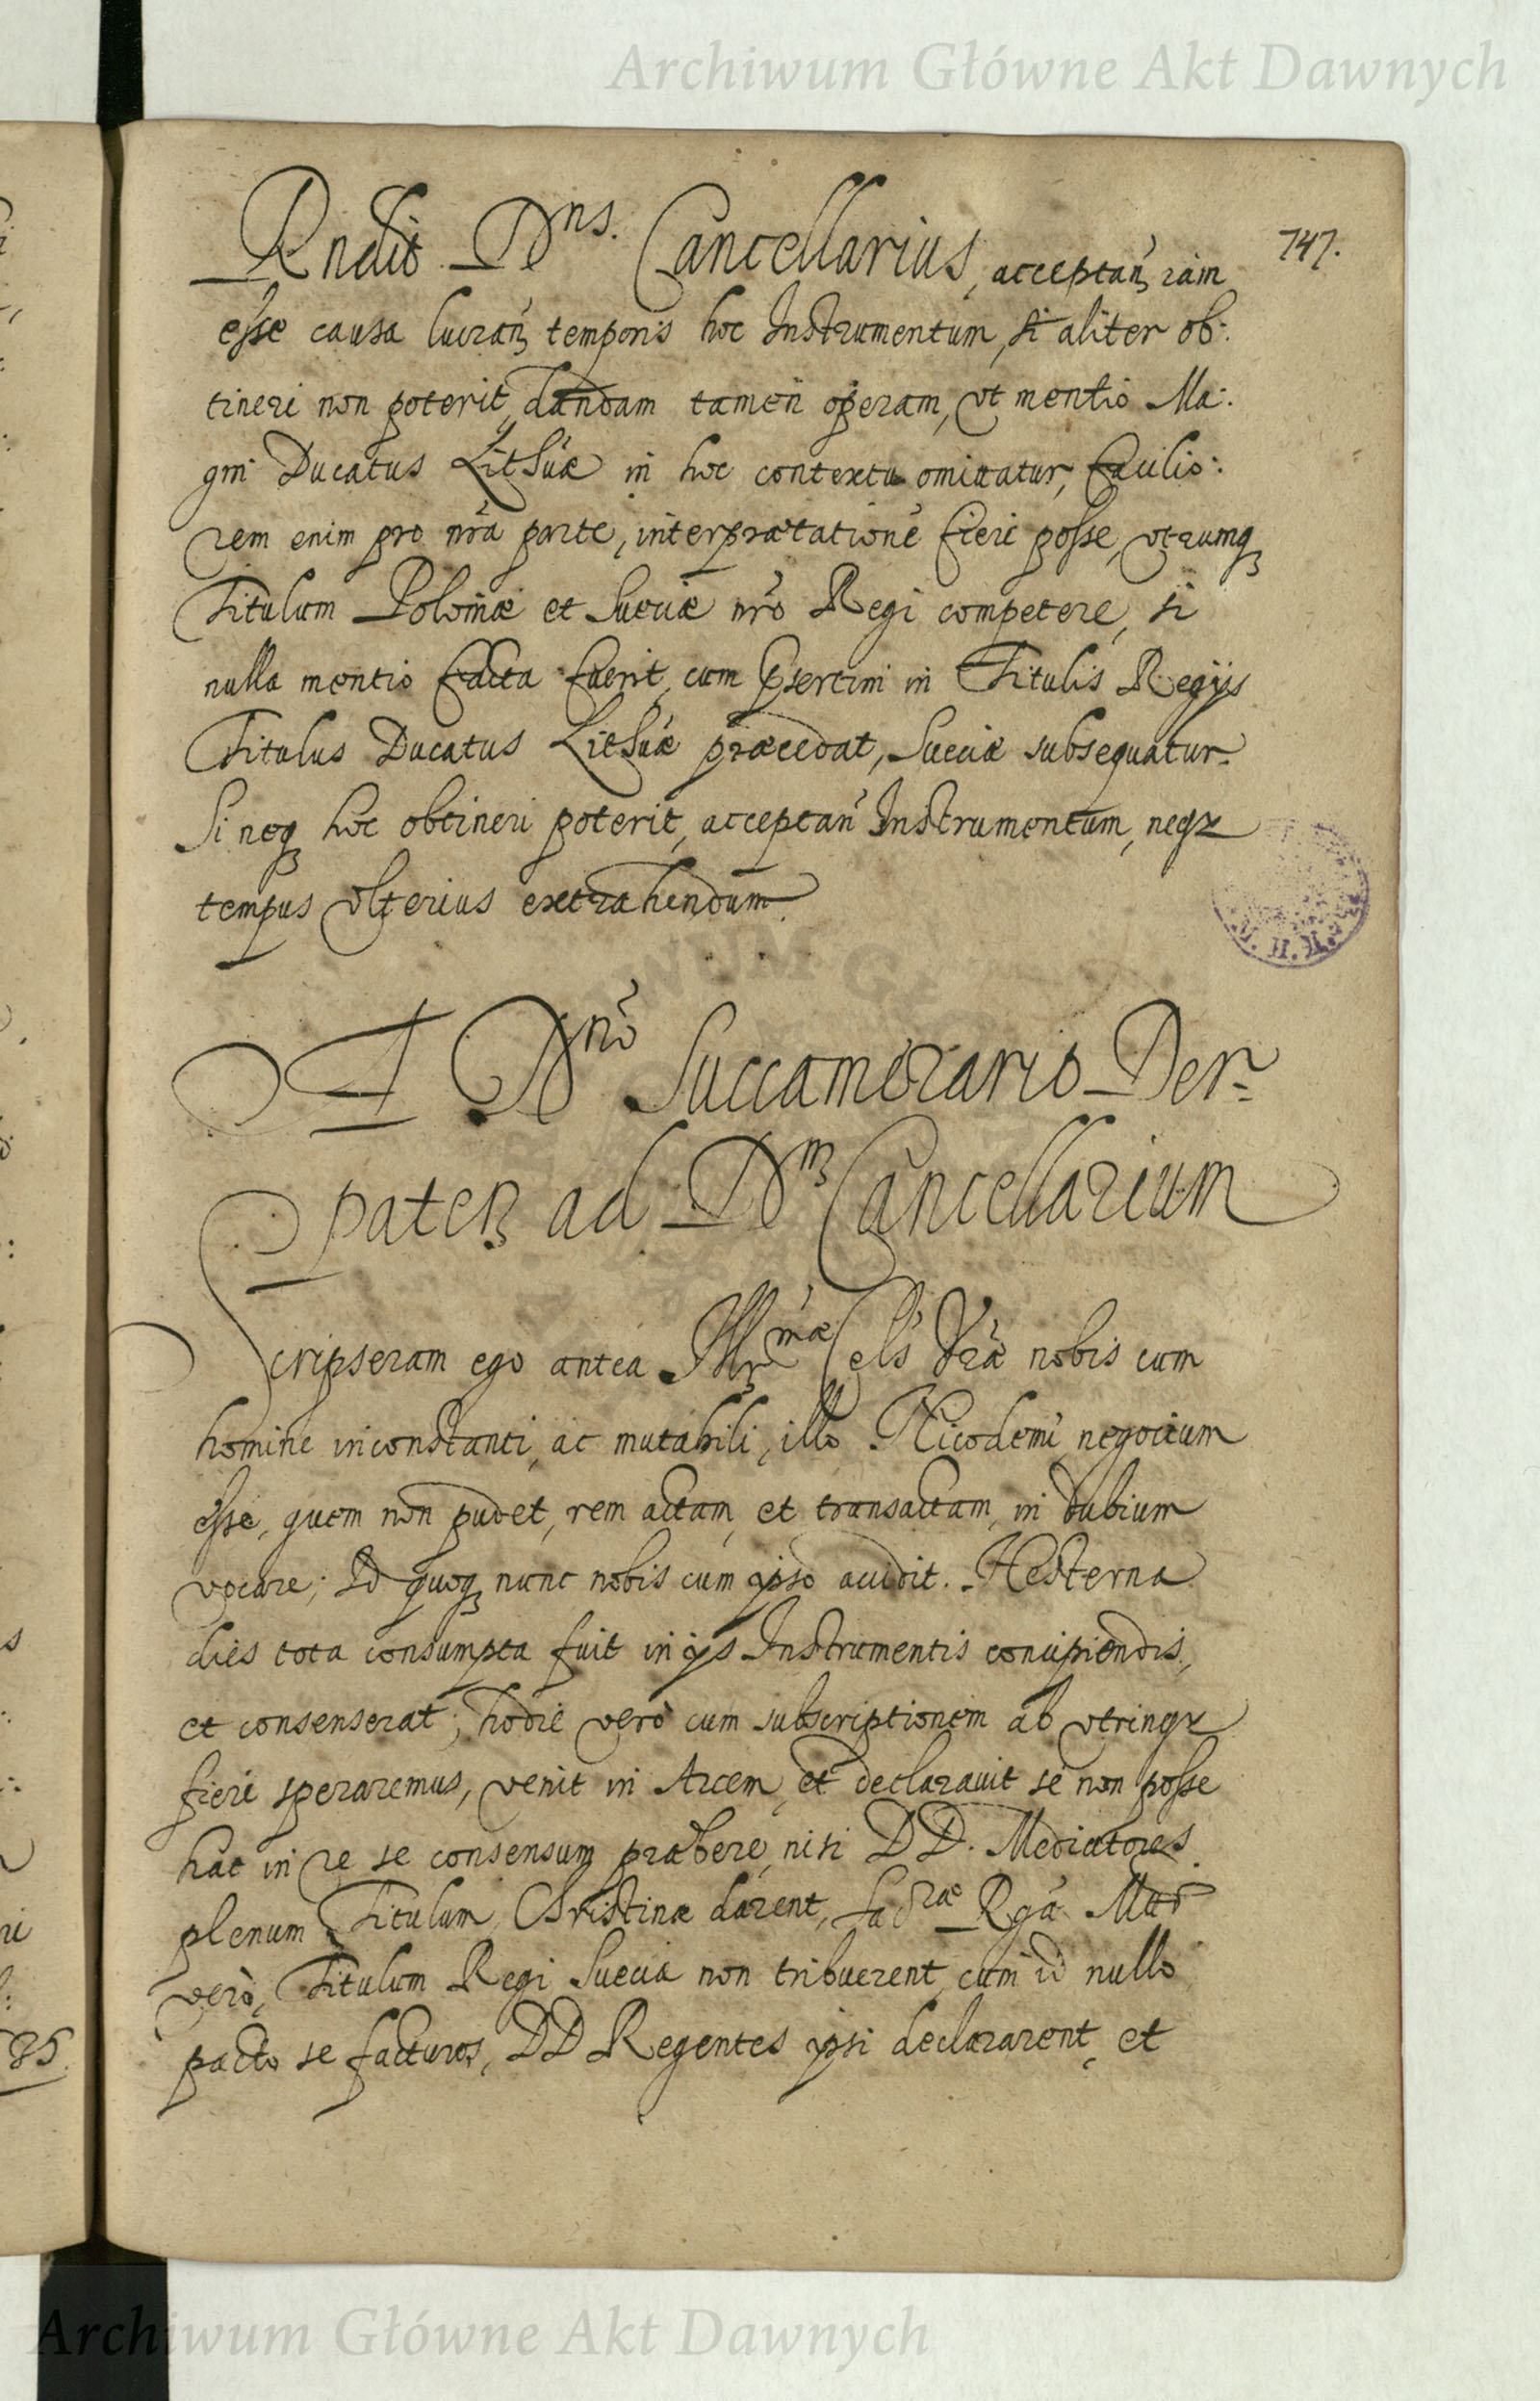 Archiwum Główne Akt Dawnych
747.
Rndit Dns. Cancellarius, acceptan̄ rām
esse causa lucran̄ temporis hoc Instrumentum, si aliter ob:
tineri non poterit, dandam tamen operam, vt mentio Ma:
gni Ducatus Lithuae in hoc contextu omittatur, facilio:
rem enim pro nrā parte, interpraetatione fieri posse, vtrumq
Titulum Poloniae et Sueciae nrō Regi competere, si
nulla mentio facta fuerit, cum psertim in Titulis Regijs
Titulus Ducatus Lithuae praecedat, Sueciae subsequatur.
Si neq hoc obtineri poterit, acceptan̄ Instrumentum, neq
tempus vlterius extrahendum.
A Dnō Succamerario Der-
paten ad Dm Cancellarium
Scripseram ego antea Illrmae Cels Vrae nobis cum
homine inconstanti, ac mutabili, illo Nicodemi negocium
esse, quem non pudet, rem actam, et transactam, in dubium
vocare; Id quoq nunc nobis cum ipso accidit. Hesterna
dies tota consumpta fuit in ijs Instrumentis concipiendis,
et consenserat; hodie verò cum subscriptionem ab vtrinq
fieri speraremus, venit in Arcem, et declarauit se non posse
hac in re se consensum praebere, nisi DD. Mediatores
plenum Titulum Christinae darent, Sacrae Rgā Matt
verò, Titulum Regi Sueciae non tribuerent, cum id nullo
pacto se facturos, DD Regentes ipsi declararent, et
Archiwum Główne Akt Dawnych